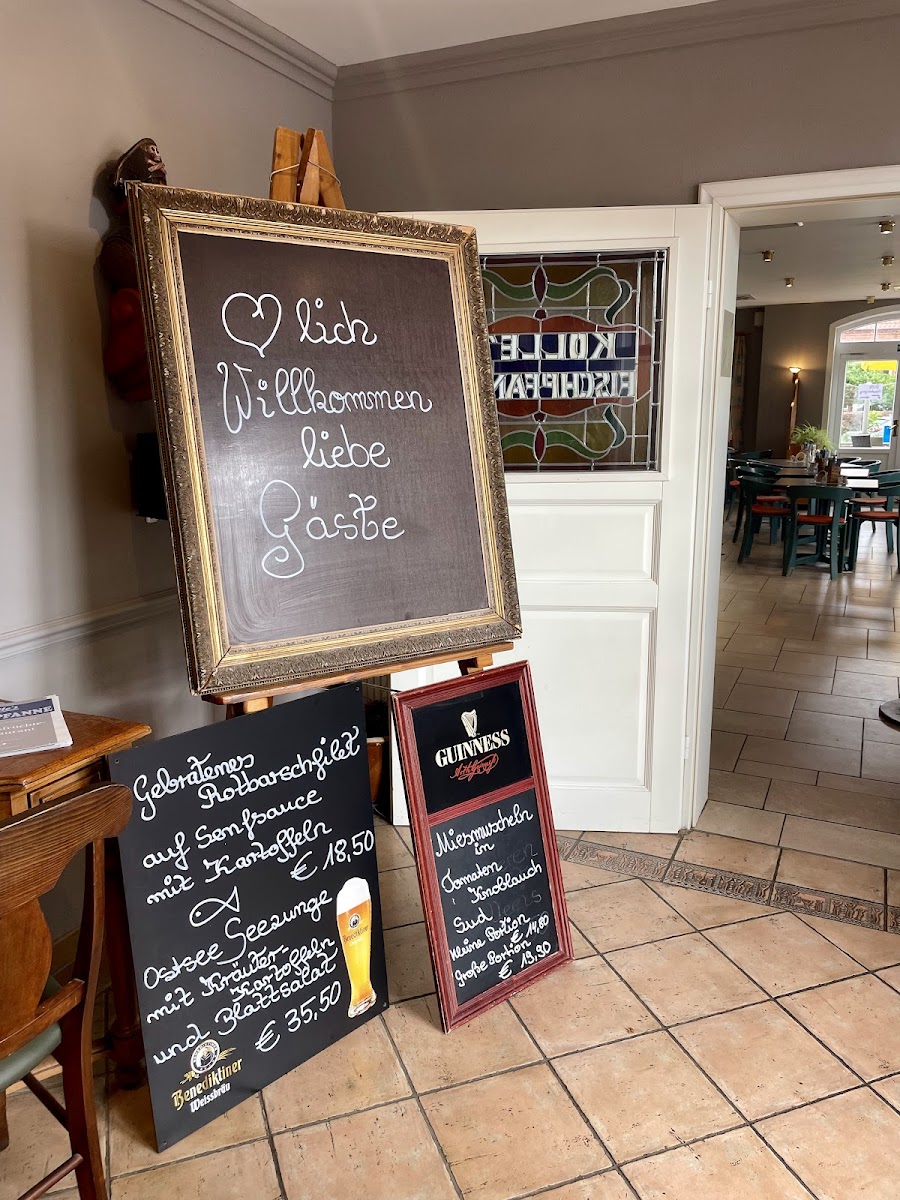 ♡lich
Willkommen
liebe
Gäste
KOLLE'S
FISCHPFAN
FANNE
Gebratenes
Rotbarschfilet
auf Senfsauce
mit Kartoffeln
€ 18,50
Ostsee Seezunge
mit Kräuter-
Kartoffeln
und Blattsalat
€ 35,50
Benediktiner
Weissbräu
GUINNESS
Miesmuscheln
in
Tomaten
Knoblauch
Sud
kleine Portion
€ 14,80
große Portion
€ 19,90